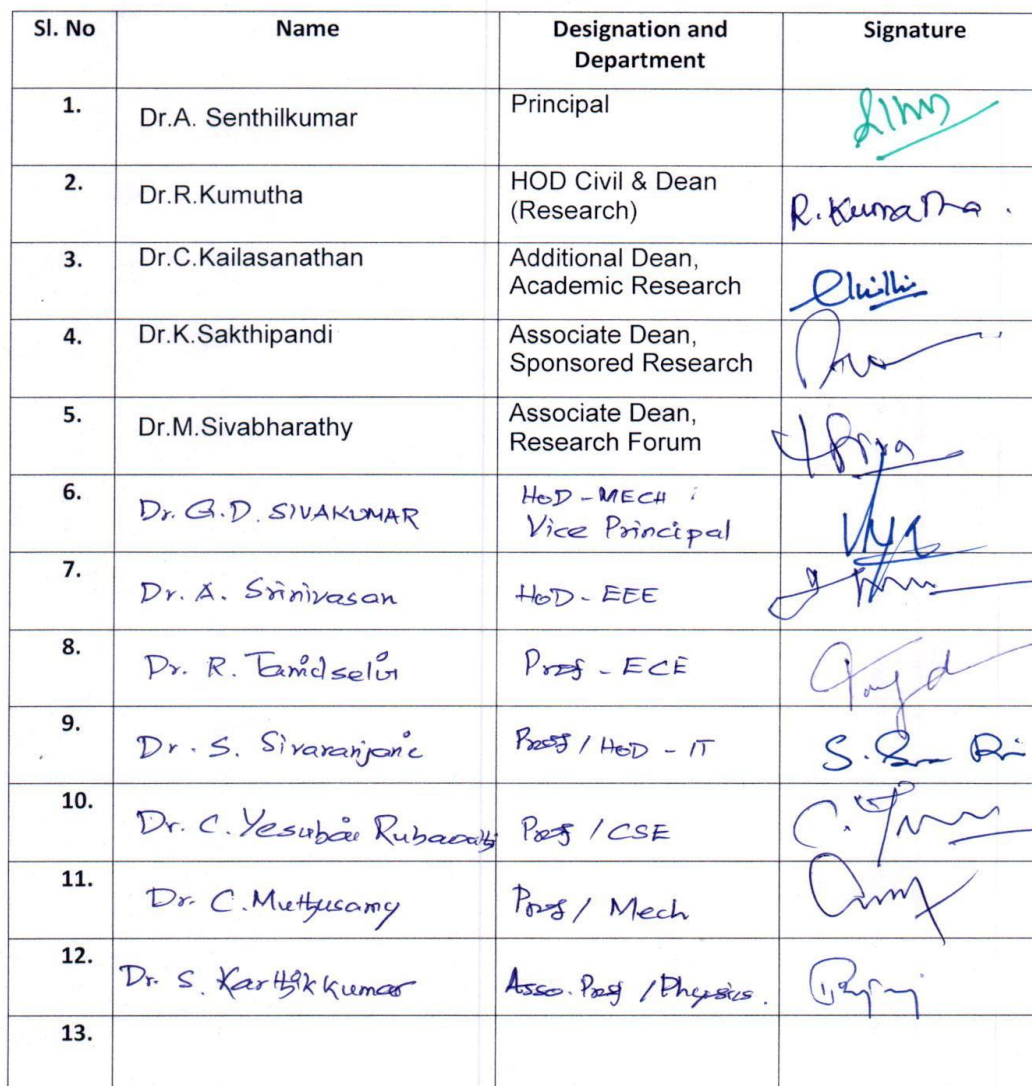 Sl. No Name Designation and Department Signature
1. Dr.A. Senthilkumar Principal
2. Dr.R.Kumutha HOD Civil & Dean (Research) R. Kumutha .
3. Dr.C.Kailasanathan Additional Dean, Academic Research
4. Dr.K.Sakthipandi Associate Dean, Sponsored Research
5. Dr.M.Sivabharathy Associate Dean, Research Forum
6. Dr. G.D. SIVAKUMAR HoD - MECH Vice Principal
7. Dr. A. Srinivasan HoD - EEE
8. Dr. R. Tamilselvi Prof - ECE
9. Dr. S. Sivaranjani Prof / HOD - IT
10. Dr. C. Yesubai Rubavathi Prof / CSE
11. Dr. C. Muthusamy Prof / Mech
12. Dr. S. Karthikkumar Asso. Prof / Physics.
13.